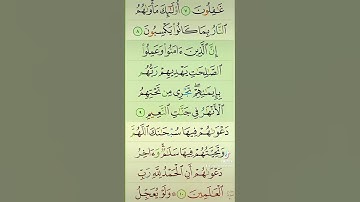 غَـٰفِلُونَ ٧ أُو۟لَـٰٓئِكَ مَأْوَىٰهُمُ
ٱلنَّارُ بِمَا كَانُوا۟ يَكْسِبُونَ ٨
إِنَّ ٱلَّذِينَ ءَامَنُوا۟ وَعَمِلُوا۟
ٱلصَّـٰلِحَـٰتِ يَهْدِيهِمْ رَبُّهُم
بِإِيمَـٰنِهِمْ ۖ تَجْرِى مِن تَحْتِهِمُ
ٱلْأَنْهَـٰرُ فِى جَنَّـٰتِ ٱلنَّعِيمِ ٩
دَعْوَىٰهُمْ فِيهَا سُبْحَـٰنَكَ ٱللَّهُمَّ
وَتَحِيَّتُهُمْ فِيهَا سَلَـٰمٌ ۚ وَءَاخِرُ
دَعْوَىٰهُمْ أَنِ ٱلْحَمْدُ لِلَّهِ رَبِّ
ٱلْعَـٰلَمِينَ ١٠ ۞ وَلَوْ يُعَجِّلُ